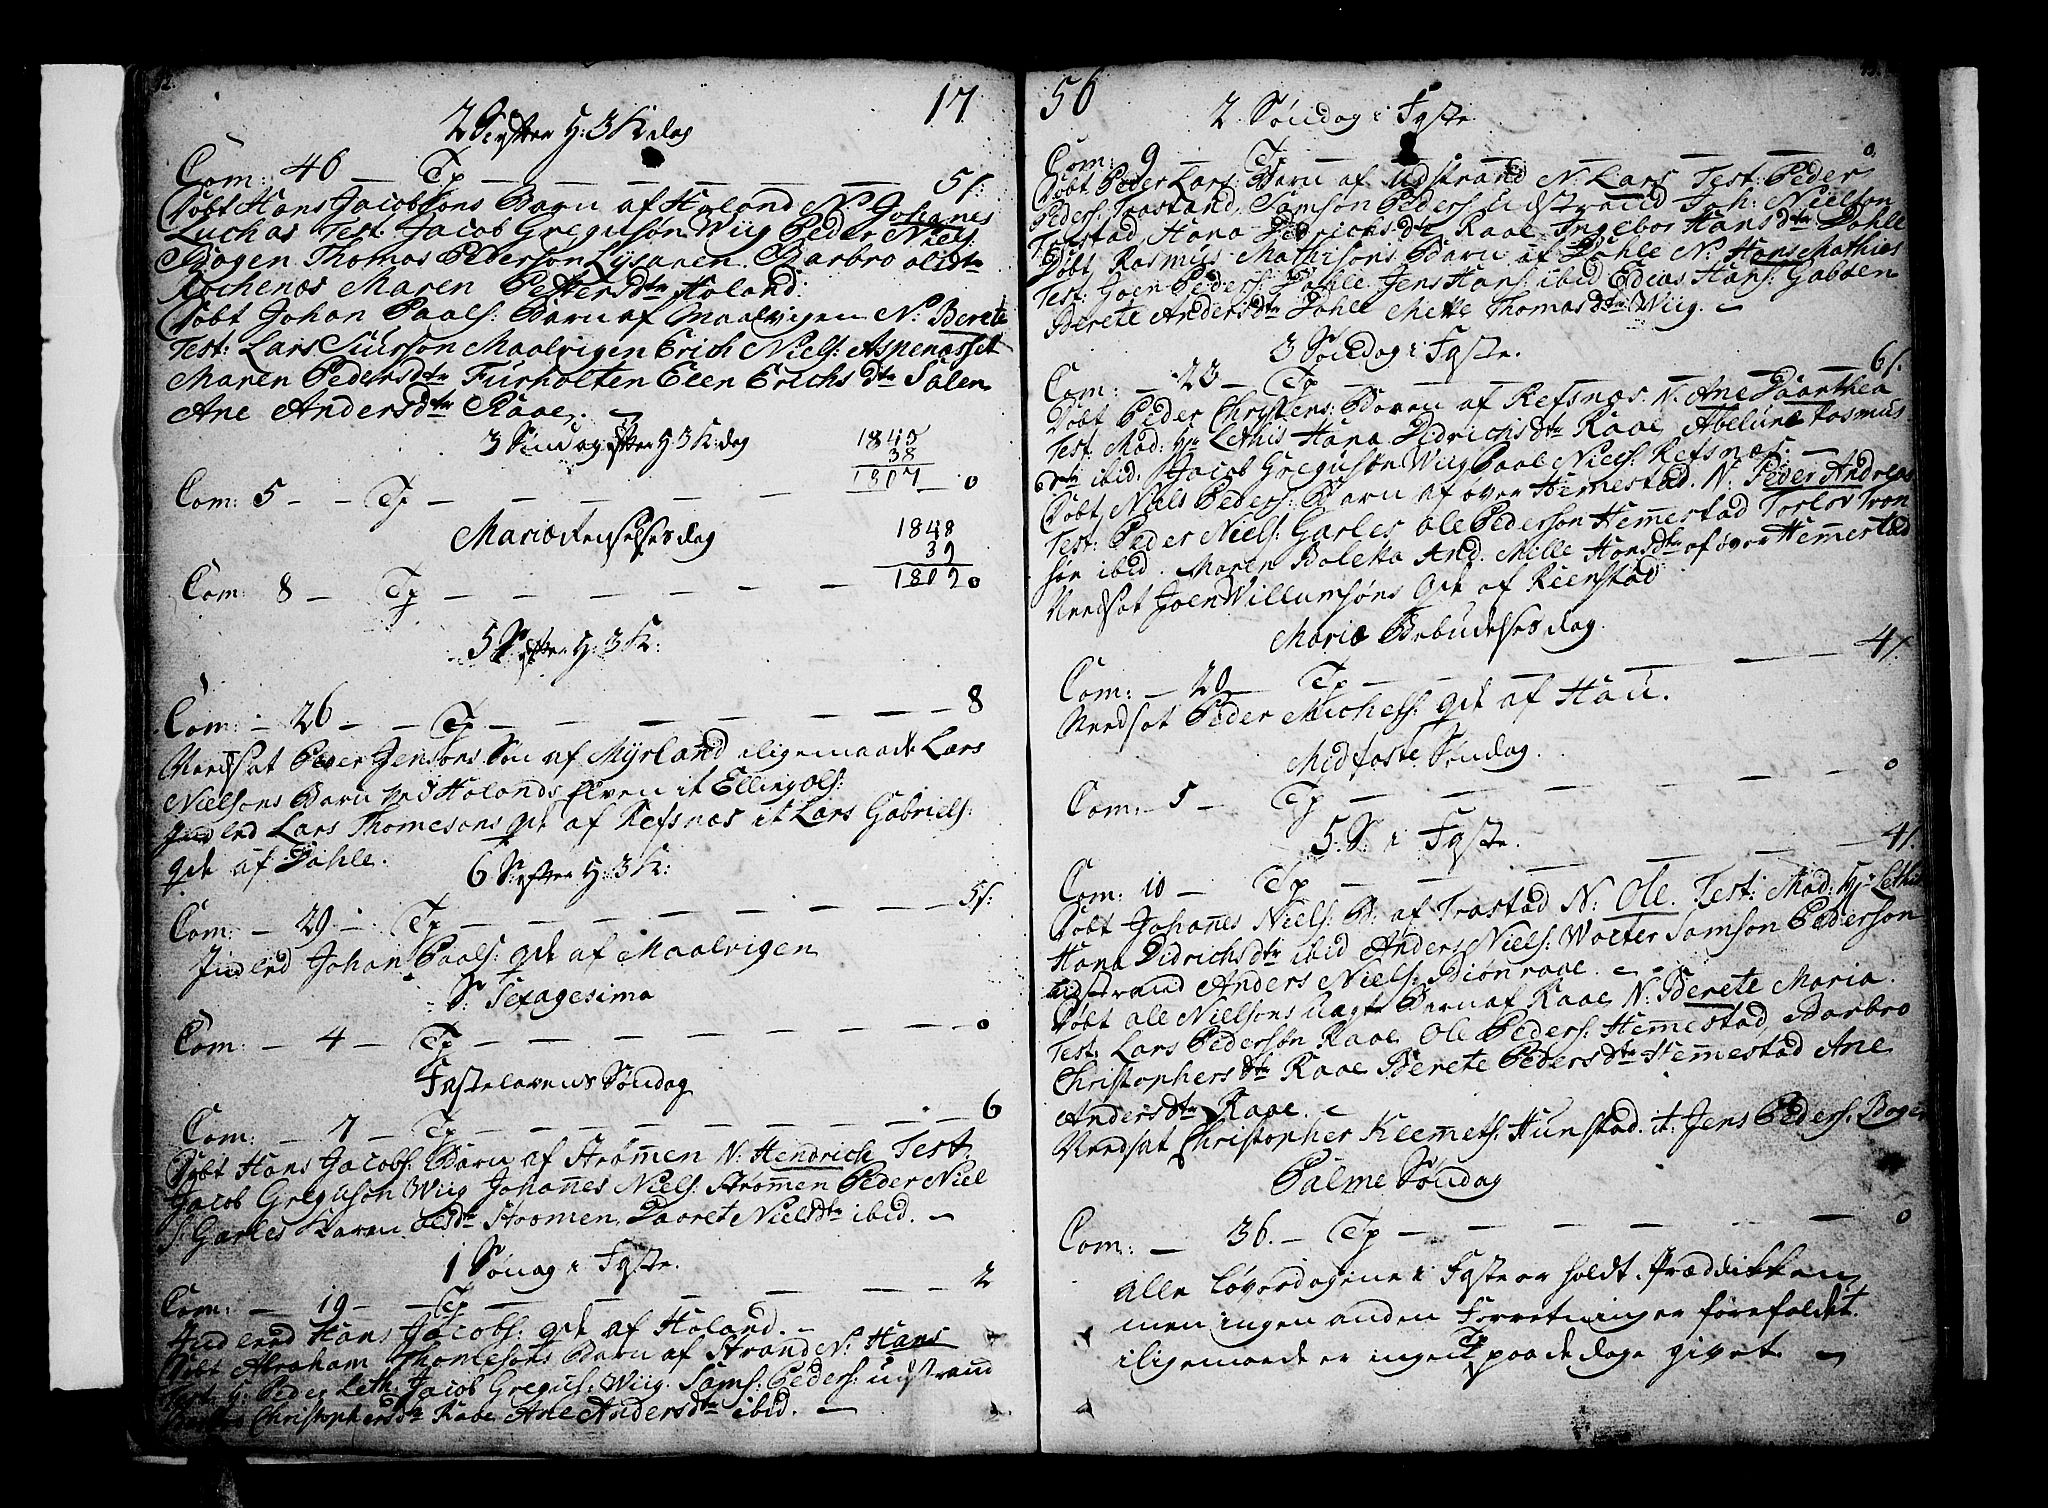 17
2 S: efter H: 3 K dag
Com: 46 — Tp — — — — — 5 s:
Døbt Hans Jacobsøns Barn af Holand N: Johanes
Luchas Test: Jacob Gregusøn Wiig Peder Niels:
Bogen Thomas Pedersøn Lysanen Barbro Olsdtr
Kochenæs Maren Pettersdtr Holand:
Døbt Johan Paals: Barn af Maalvigen N: Berete
Test: Lars Siursøn Maalvigen Erich Niels: Aspenæsset
Maren Pedersdtr Furholten Elen Erichsdtr Salen
Ane Andersdtr Raae.
3 Søndag efter H 3 K: dag
1845
38
1807
Com: 5 — — Tp — — — — — 0
Mariæ Renselses dag
1848
39
1809
Com: 8 — Tp — — — — — 0
5 S: efter H: 3 K:
Com: — 26 — — Tp — — — — — 8
Nedsat Peder Jensøns Søn af Myrland iligemaade Lars
Nielsøns Barn ved Holands Elven it Elling Ols:
Indled Lars Thomesøns qde af Refsnæs it Lars Gabriels:
qde af Dahle.
6 S: efter H: 3 K:
Com: — 29 — Tp — — — — — 5 s:
Indled Johan Paals: qde af Maalvigen
S: Sexagesima
Com: — 4 — Tp — — — — — 0
Fastelavens Søndag
Com: — 7 — Tp — — — — — 6
Døbt Hans Jacobs: Barn af Strømen N: Hendrich Test:
Jacob Gregusøn Wiig Johanes Niels: Strømen Peder Niel
s: Garles Karen Olsdtr Strømen, Daarete Nielsdtr ibid. —
1 Sønag i Faste.
Com: — 19 — — Tp — — — — — 2
Indled Hans Jacobs: qde af Holand. —
Døbt Abraham Thomesøns Barn af Strand N: Hans
Test: H: Peder Leth: Jacob Gregus: Wiig. Sams: Peders: Udstrand
Christophersdtr Raae Ane Andersdtr ibid. —
56
2 Søndag i Faste
Com: 9 — Tp — — — — — 0
Døbt Peder Lars: Barn af Udstrand N: Lars Test: Peder
Peders: Traastand, Samson Peders: Udstrand Joh: Nielsøn
Trastad, Hana Didrichsdtr Raae Ingebor Hansdtr Dahle
Døbt Rasmus Mathisøns Barn af Dahle N: Hans Mathias
Test: Joen Peders: Dahle Jens Hans: ibid Edias Hans: Gabsen
Berete Andersdtr Dahle Mette Thomasdtr Wiig. —
3 Søndag i Faste.
Com: — 23 — Tp — — — — — 6 s.
Døbt Peder Chrystens: Barn af Refsnæs N: Ane Daarthea
Test: Mad: Hr Lethis Hana Didrichsdtr Raae Abelune Rasmus
dtr ibid. Jacob Gregusøn Wiig Paal Niels: Refsnæs. —
Døbt Niels Peders: Barn af Øver Hemestad. N: Peder Andreas
Test: Peder Niels: Garles Ole Pedersøn Hemestad Torlov Tron
søn ibid. Maren Boletta And. Mille Hansdtr af Øver Hemmestad
Nedsat Joen Willumsøns qde af Reenstad
Mariæ Bebudelses dag.
Com: — 20 — Tp — — — — — 4 s.
Nedsat Peder Michels: qde af Hau.
Midfaste Søndag.
Com: — 5 — Tp — — — — — 0
5. S: i Faste.
Com: 10 — Tp — — — — — 4 s.
Døbt Johanes Niels: B: af Trastad N: Ole. Test: Mad: Hr Lethis
Hana Didrichsdtr ibid Anders Niels: Wolter Samson Pedersøn
Udstrand Anders Niels: Biønraae. —
Døbt Ole Nielsøns Uagte Barn af Raae N: Berete Maria.
Test: Lars Pedersøn Raae, Ole Peders: Hemestad, Barbro
Christophersdtr Raae Berete Pedersdtr Hemestad Ane
Andersdtr Raae. —
Nedsat Christopher Klemets: Hunstad. it: Jens Peders: Bogen
Palme Søndag
Com: — 36. — Tp — — — — — 0
Alle Løverdagene i Faste er holdt Præddikken
men ingen anden Forretning er forefaldet
iligemaade er ingen Tp paa de dage givet. —